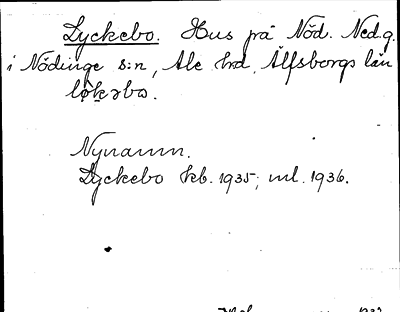 Lyckebo. Hus på Nöd. Ned.g.
i Nödinge s:n, Ale hd. Älfsborgs län
lø̀kəbo.
Nynamn.
Lyckebo kb. 1935; ml. 1936.